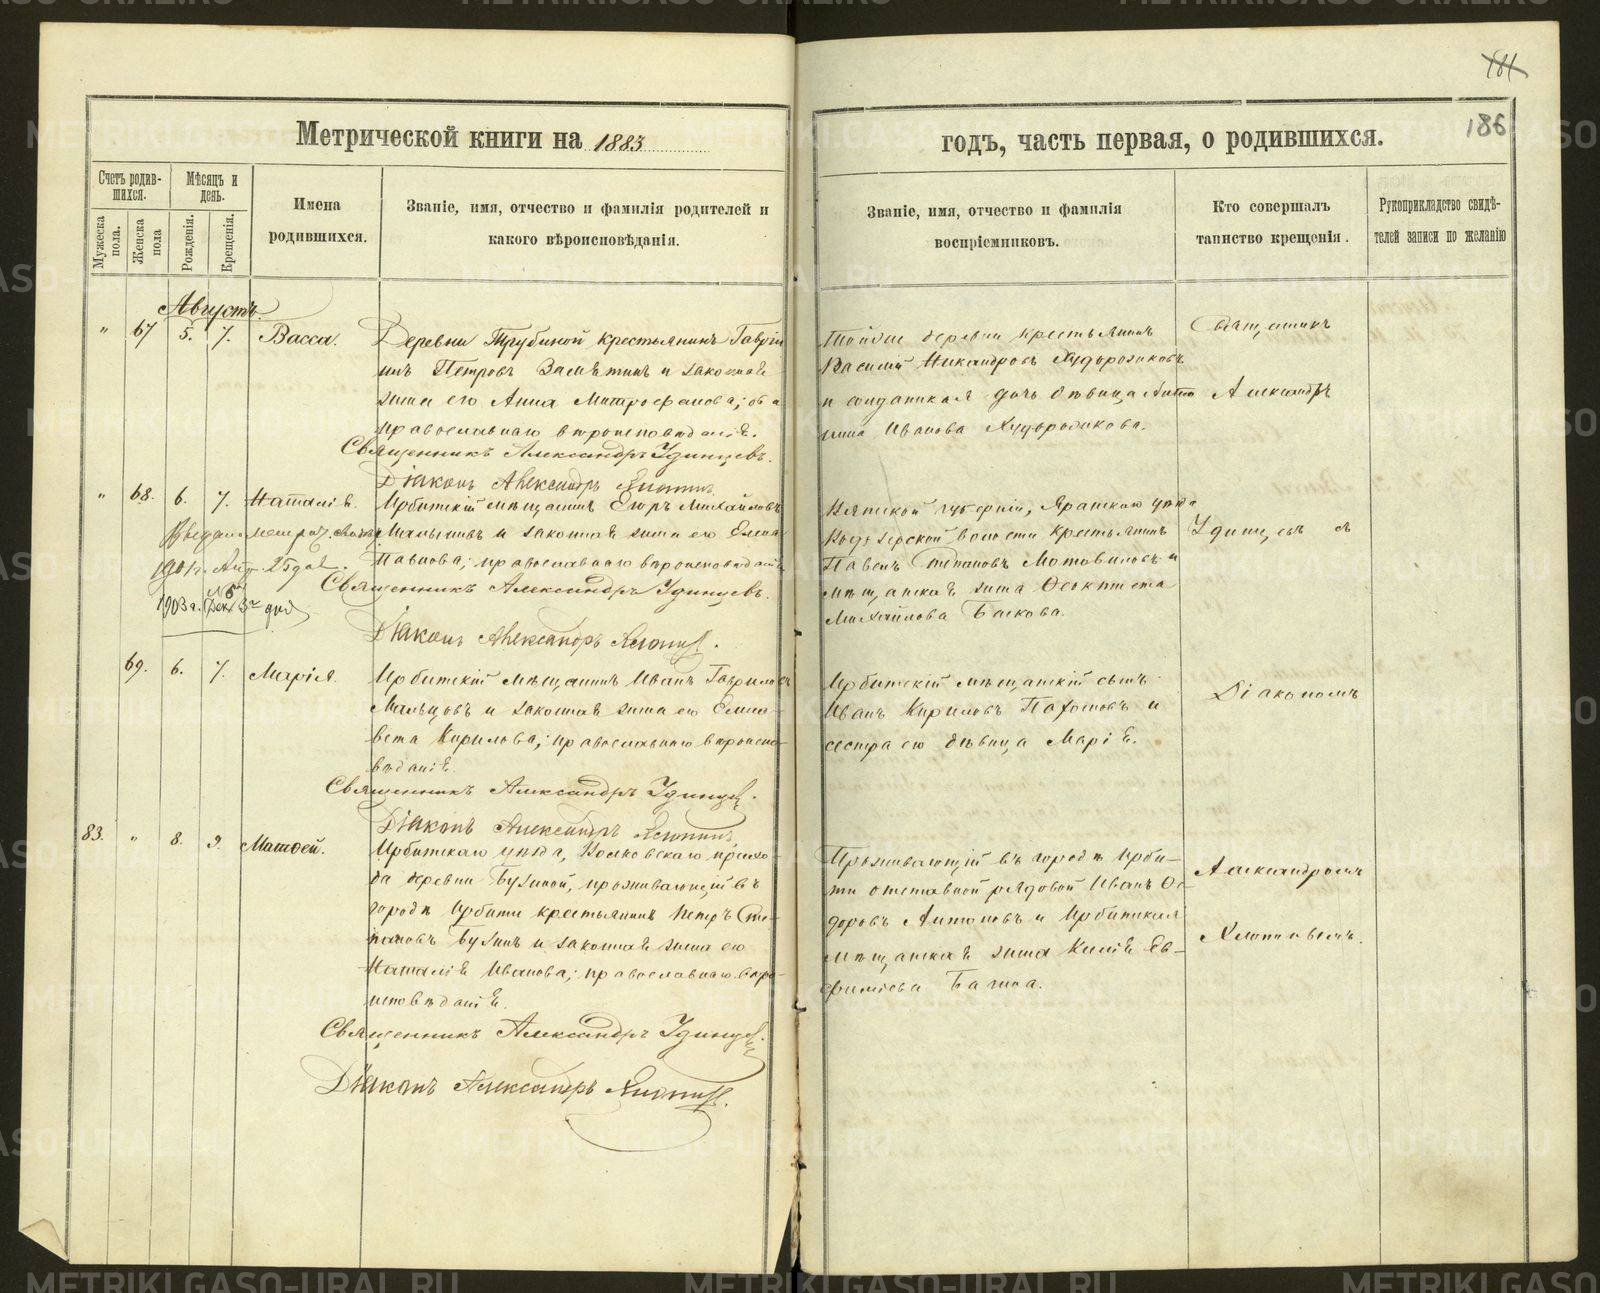 181
186
Метрической книги на 1883
годъ, часть первая, о родившихся.
Счетъ родив-
шихся.
Мѣсяцъ и
день.
Мужеска
пола.
Женска
пола
Рожденія.
Крещенія.
Имена
родившихся.
Званіе, имя, отчество и фамилія родителей и
какого вѣроисповѣданія.
Званіе, имя, отчество и фамилія
воспріемниковъ.
Кто совершалъ
таинство крещенія.
Рукоприкладство свидѣ-
телей записи по желанію
Августъ.
" 67 5. 7. Васса.
Деревни Трубиной крестьянинъ Гаврі
илъ Петровъ Замѣтинъ и законная
жена его Анна Митрофанова; оба
православнаго вѣроисповѣданія.
Священникъ Александръ Удинцевъ.
Діаконъ Александръ
Тойже деревни крестьянинъ
Василій Никандровъ Худорожковъ
и солдатская дочь дѣвица
Иванова Худорожкова.
Священникъ
Александръ
Удинцевъ съ
" 68. 6. 7. Наталія.
1901 г. 25 дня
1903 г. Дек. 3го дня
Ирбитскій мѣщанинъ Егоръ Михайловъ
и законная жена его Елена
Павлова; православнаго вѣроисповѣданія
Священникъ Александръ Удинцевъ.
Діаконъ Александръ
Вятской губерніи, Яранскаго уѣзда
волости крестьянинъ
Павелъ Степановъ Мотовиловъ и
мѣщанская жена Феоктиста
Михайлова
69. 6. 7. Марія.
Ирбитскій мѣщанинъ Иванъ Гавриловъ
Мальцовъ и законная жена его Елиса-
вета Кирилова; православнаго вѣроиспо-
вѣданія.
Священникъ Александръ Удинцевъ.
Діаконъ Александръ
Ирбитскій мѣщанскій сынъ
Иванъ Кириловъ Пахомовъ и
сестра его дѣвица Марія.
Діакономъ
83. " 8. 9. Матѳей.
Ирбитскаго уѣзда, Волковскаго прихо-
да деревни Бузиной, проживающій въ
городѣ Ирбити крестьянинъ Петръ Сте-
пановъ Бузинъ и законная жена его
Наталія Иванова; православнаго вѣро-
исповѣданія.
Священникъ Александръ Удинцевъ.
Діаконъ Александръ
Проживающій въ городѣ Ирби-
ти отставной рядовой Иванъ Ѳе-
доровъ Антоновъ и Ирбитская
мѣщанская жена Ев-
фиміева
Александромъ